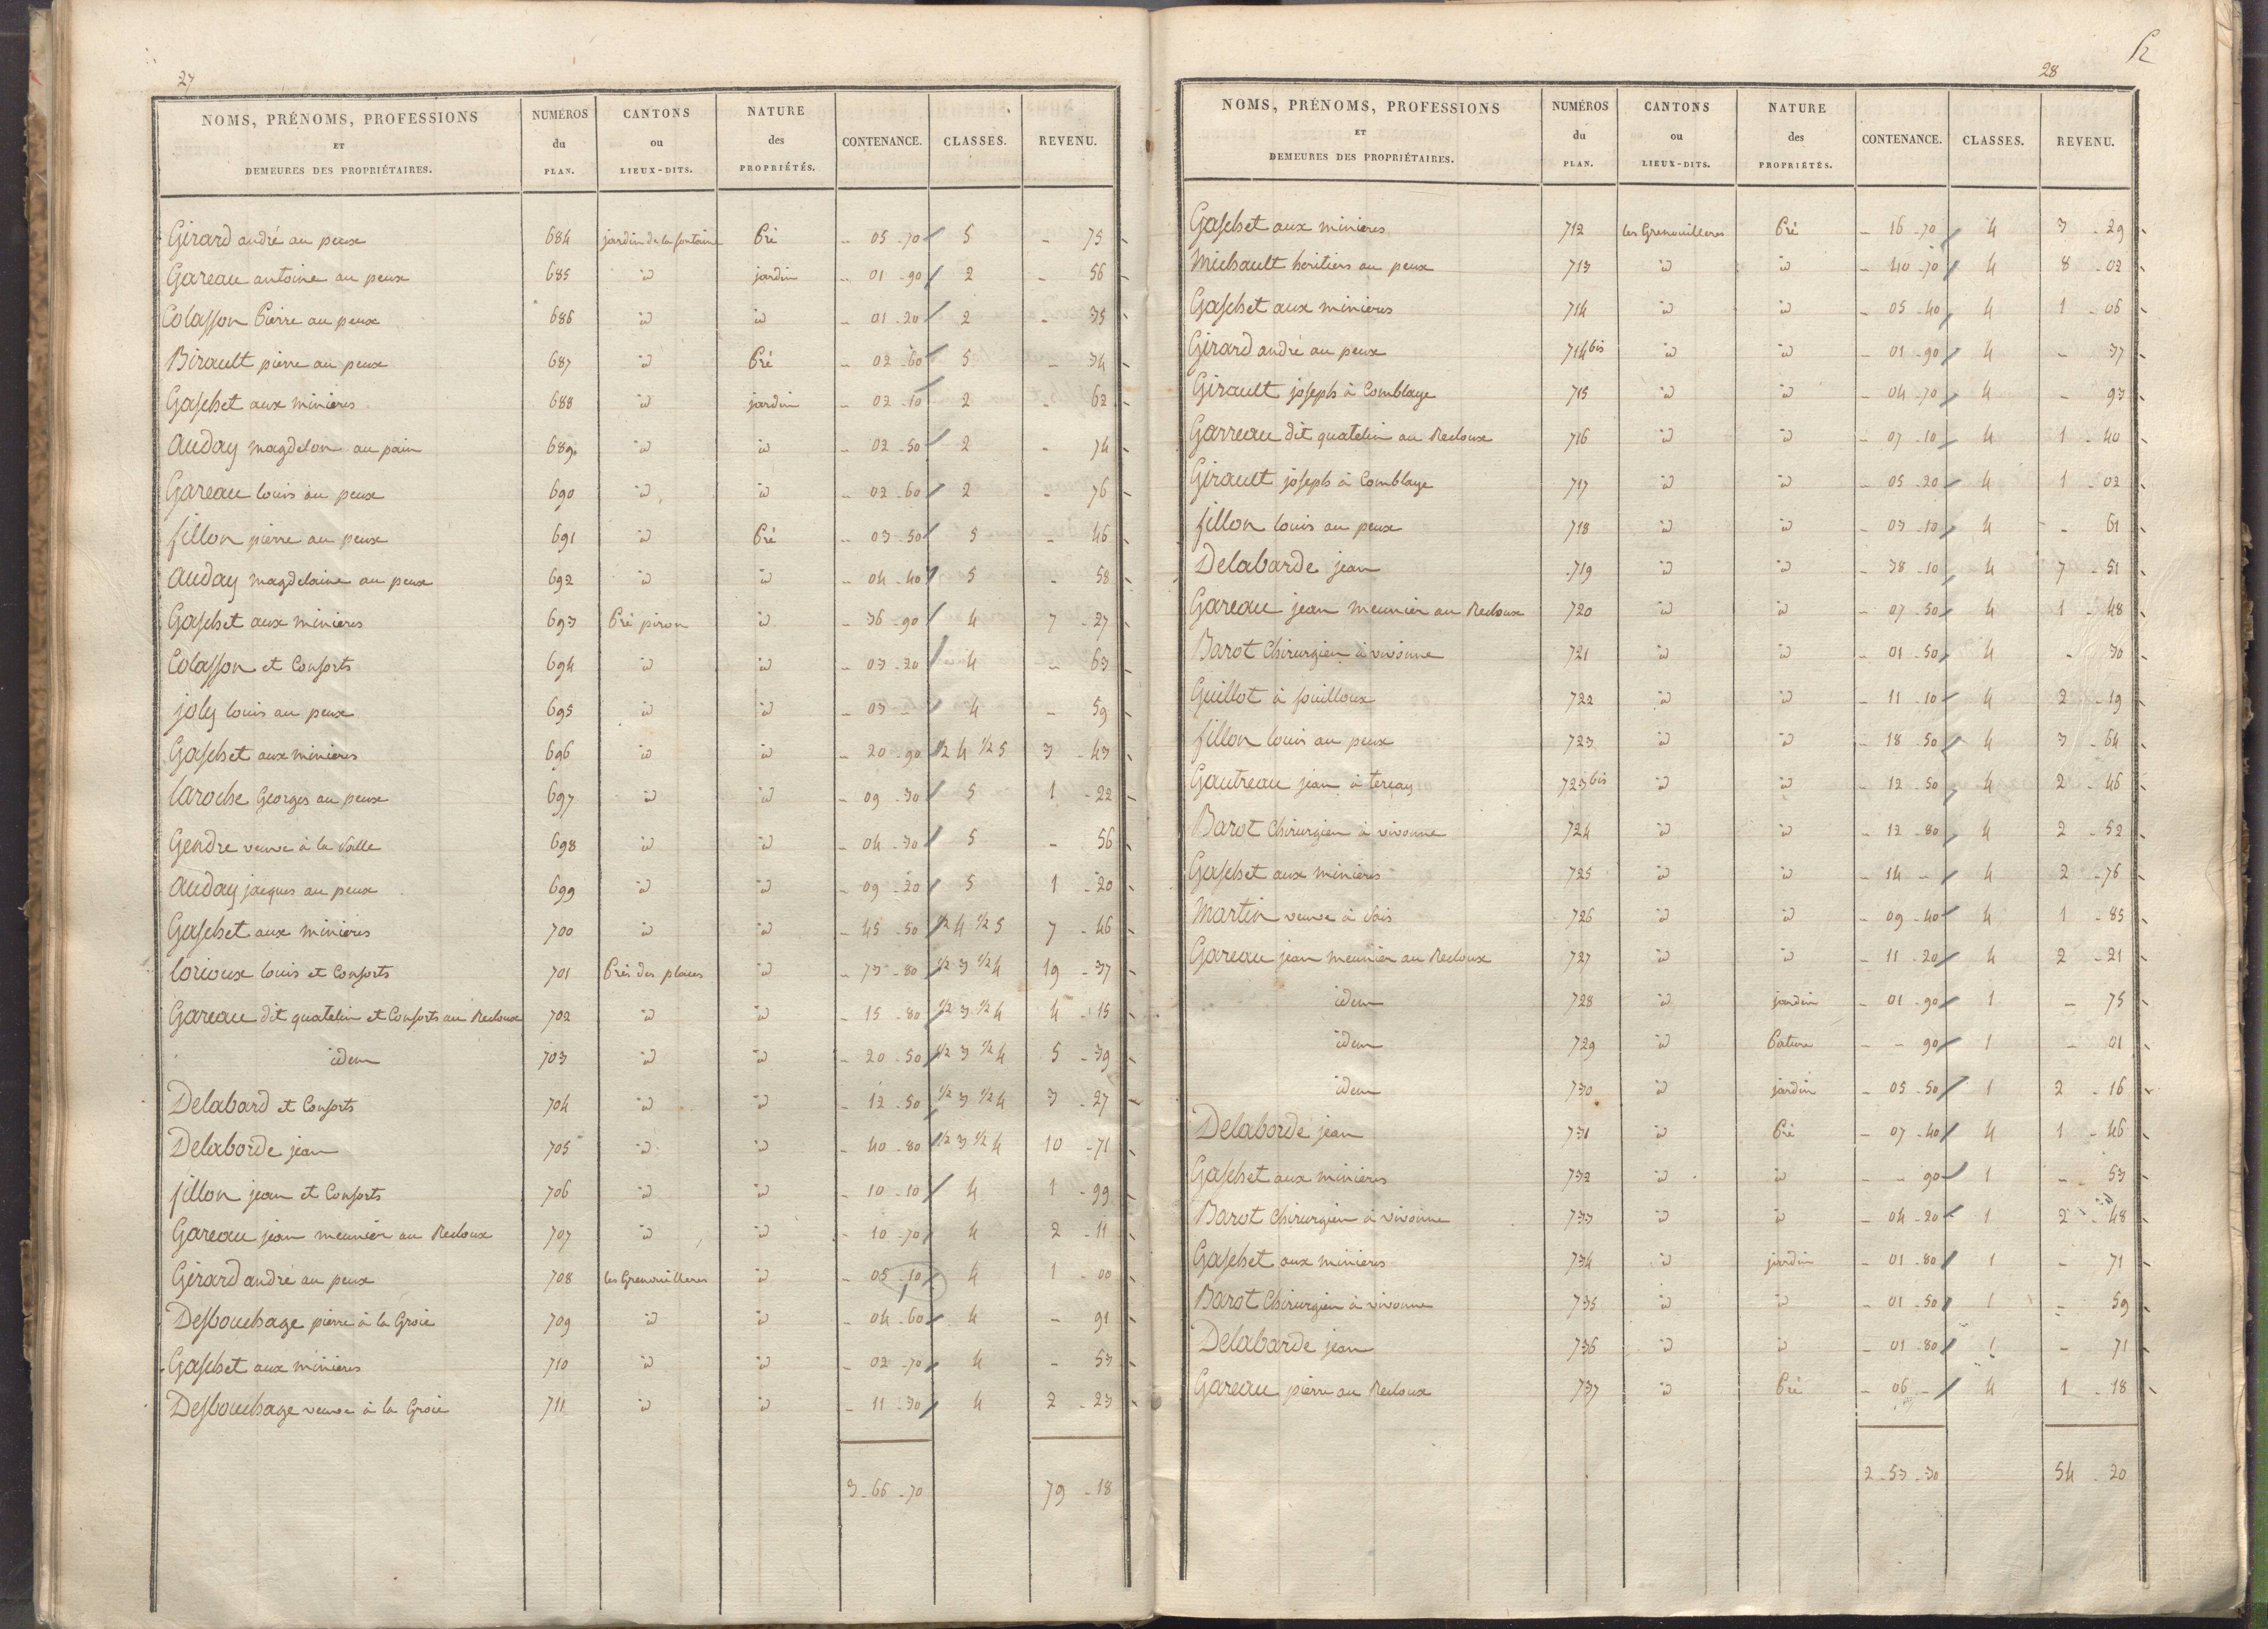 27
NOMS, PRÉNOMS, PROFESSIONS ET DEMEURES DES PROPRIÉTAIRES. NUMÉROS du PLAN. CANTONS ou LIEUX-DITS. NATURE des PROPRIÉTÉS. CONTENANCE. CLASSES. REVENU.
Girard andré au peux 684 jardin de la fontaine Pré - 05 - 70 5 - 75
Gareau antoine au peux 685 id jardin - 01 - 90 2 - 56
Colasson Pierre au peux 686 id id - 01 - 20 2 - 35
Birault pierre au peux 687 id Pré - 02 - 60 5 - 34
Gaschet aux minieres 688 id jardin - 02 - 10 2 - 62
auday magdelon au pain 689 id id - 02 - 50 2 - 74
Gareau louis au peux 690 id id - 02 - 60 2 - 76
fillon pierre au peux 691 id Pré - 03 - 50 5 - 46
auday magdelaine au peux 692 id id - 04 - 40 5 - 58
Gaschet aux minieres 693 Pré piron id - 36 - 90 4 7 - 27
Colasson et Consorts 694 id id - 03 - 20 4 - 63
joly louis au peux 695 id id - 03 - 4 - 59
Gaschet aux minieres 696 id id - 20 - 90 1/2 4 1/2 5 3 - 43
laroche Georges au peux 697 id id - 09 - 30 5 1 - 22
Gendre veuve à la Salle 698 id id - 04 - 30 5 - 56
auday jacques au peux 699 id id - 09 - 20 5 1 - 20
Gaschet aux minieres 700 id id - 45 - 50 1/2 4 1/2 5 7 - 46
lorioux louis et Consorts 701 Prés des places id - 73 - 80 1/2 3 1/2 4 19 - 37
Gareau dit quatelin et Consorts au Recloux 702 id id - 15 - 80 1/2 3 1/2 4 4 - 15
idem 703 id id - 20 - 50 1/2 3 1/2 4 5 - 39
Delabard et Consorts 704 id id - 12 - 50 1/2 3 1/2 4 3 - 27
Delaborde jean 705 id id - 40 - 80 1/2 3 1/2 4 10 - 71
fillon jean et Consorts 706 id id - 10 - 10 4 1 - 99
Gareau jean meunier au Recloux 707 id id - 10 - 70 4 2 - 11
Girard andré au peux 708 les Grenouilleres id - 05 - 10 4 1 - 00
Desbouchage pierre à la Groie 709 id id - 04 - 60 4 - 91
Gaschet aux minieres 710 id id - 02 - 70 4 - 53
Desbouchage veuve à la Groie 711 id id - 11 - 30 4 2 - 23
3 - 66 - 70 79 - 18
28
NOMS, PRÉNOMS, PROFESSIONS ET DEMEURES DES PROPRIÉTAIRES. NUMÉROS du PLAN. CANTONS ou LIEUX-DITS. NATURE des PROPRIÉTÉS. CONTENANCE. CLASSES. REVENU.
Gaschet aux minieres 712 les Grenouilleres Pré - 16 - 70 4 3 - 29
Michault heritiers au peux 713 id id - 40 - 70 4 8 - 02
Gaschet aux minieres 714 id id - 05 - 40 4 1 - 06
Girard andré au peux 714 bis id id - 01 - 90 4 - 37
Girault joseph à Comblaye 715 id id - 04 - 70 4 - 93
Garreau dit quatelin au Recloux 716 id id - 07 - 10 4 1 - 40
Girault joseph à Comblaye 717 id id - 05 - 20 4 1 - 02
fillon louis au peux 718 id id - 03 - 10 4 - 61
Delabarde jean 719 id id - 38 - 10 4 7 - 51
Gareau jean meunier au Recloux 720 id id - 07 - 50 4 1 - 48
Barot Chirurgien à vivonne 721 id id - 01 - 50 4 - 30
Guillot à souilloux 722 id id - 11 - 10 4 2 - 19
fillon louis au peux 723 id id - 18 - 50 4 3 - 64
Gautreau jean à tercay 723 bis id id - 12 - 50 4 2 - 46
Barot Chirurgien à vivonne 724 id id - 12 - 80 4 2 - 52
Gaschet aux minieres 725 id id - 14 - 4 2 - 76
Martin veuve à Vais 726 id id - 09 - 40 4 1 - 85
Gareau jean meunier au Recloux 727 id id - 11 - 20 4 2 - 21
idem 728 id jardin - 01 - 90 1 - 75
idem 729 id Pature - - 90 1 - 01
idem 730 id jardin - 05 - 50 1 2 - 16
Delaborde jean 731 id Pré - 07 - 40 4 1 - 46
Gaschet aux minieres 732 id id - - 90 1 - 53
Barot Chirurgien à vivonne 733 id id - 04 - 20 1 2 - 48
Gaschet aux minieres 734 id jardin - 01 - 80 1 - 71
Barot Chirurgien à vivonne 735 id id - 01 - 50 1 - 59
Delabarde jean 736 id id - 01 - 80 1 - 71
Gareau pierre au Recloux 737 id Pré - 06 - 4 1 - 18
2 - 53 - 30 54 - 20